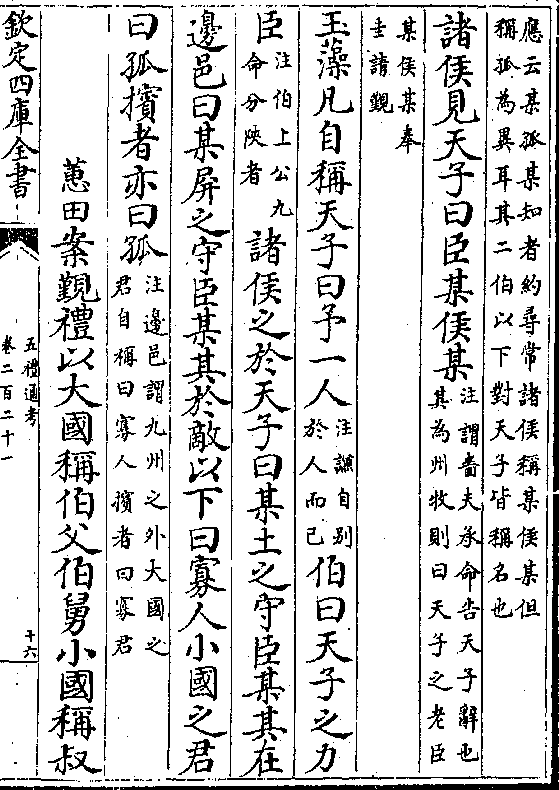 應云某孤某知者約尋常諸侯稱某侯某但
稱孤為異耳其二伯以下對天子皆稱名也
諸侯見天子曰臣某侯某
注謂嗇夫承命告天子辭也
其為州牧則曰天子之老臣
某侯某奉
圭請覲
玉藻凡自稱天子曰予一人
注謙自别
於人而已
伯曰天子之力
臣
注伯上公九
命分陜者
諸侯之於天子曰某土之守臣某其在
邊邑曰某屏之守臣某其於敵以下曰寡人小國之君
曰孤擯者亦曰孤
注邊邑謂九州之外大國之
君自稱曰寡人擯者曰寡君
蕙田案覲禮以大國稱伯父伯舅小國稱叔
欽定四庫全書
五禮通考
卷二百二十一
十六